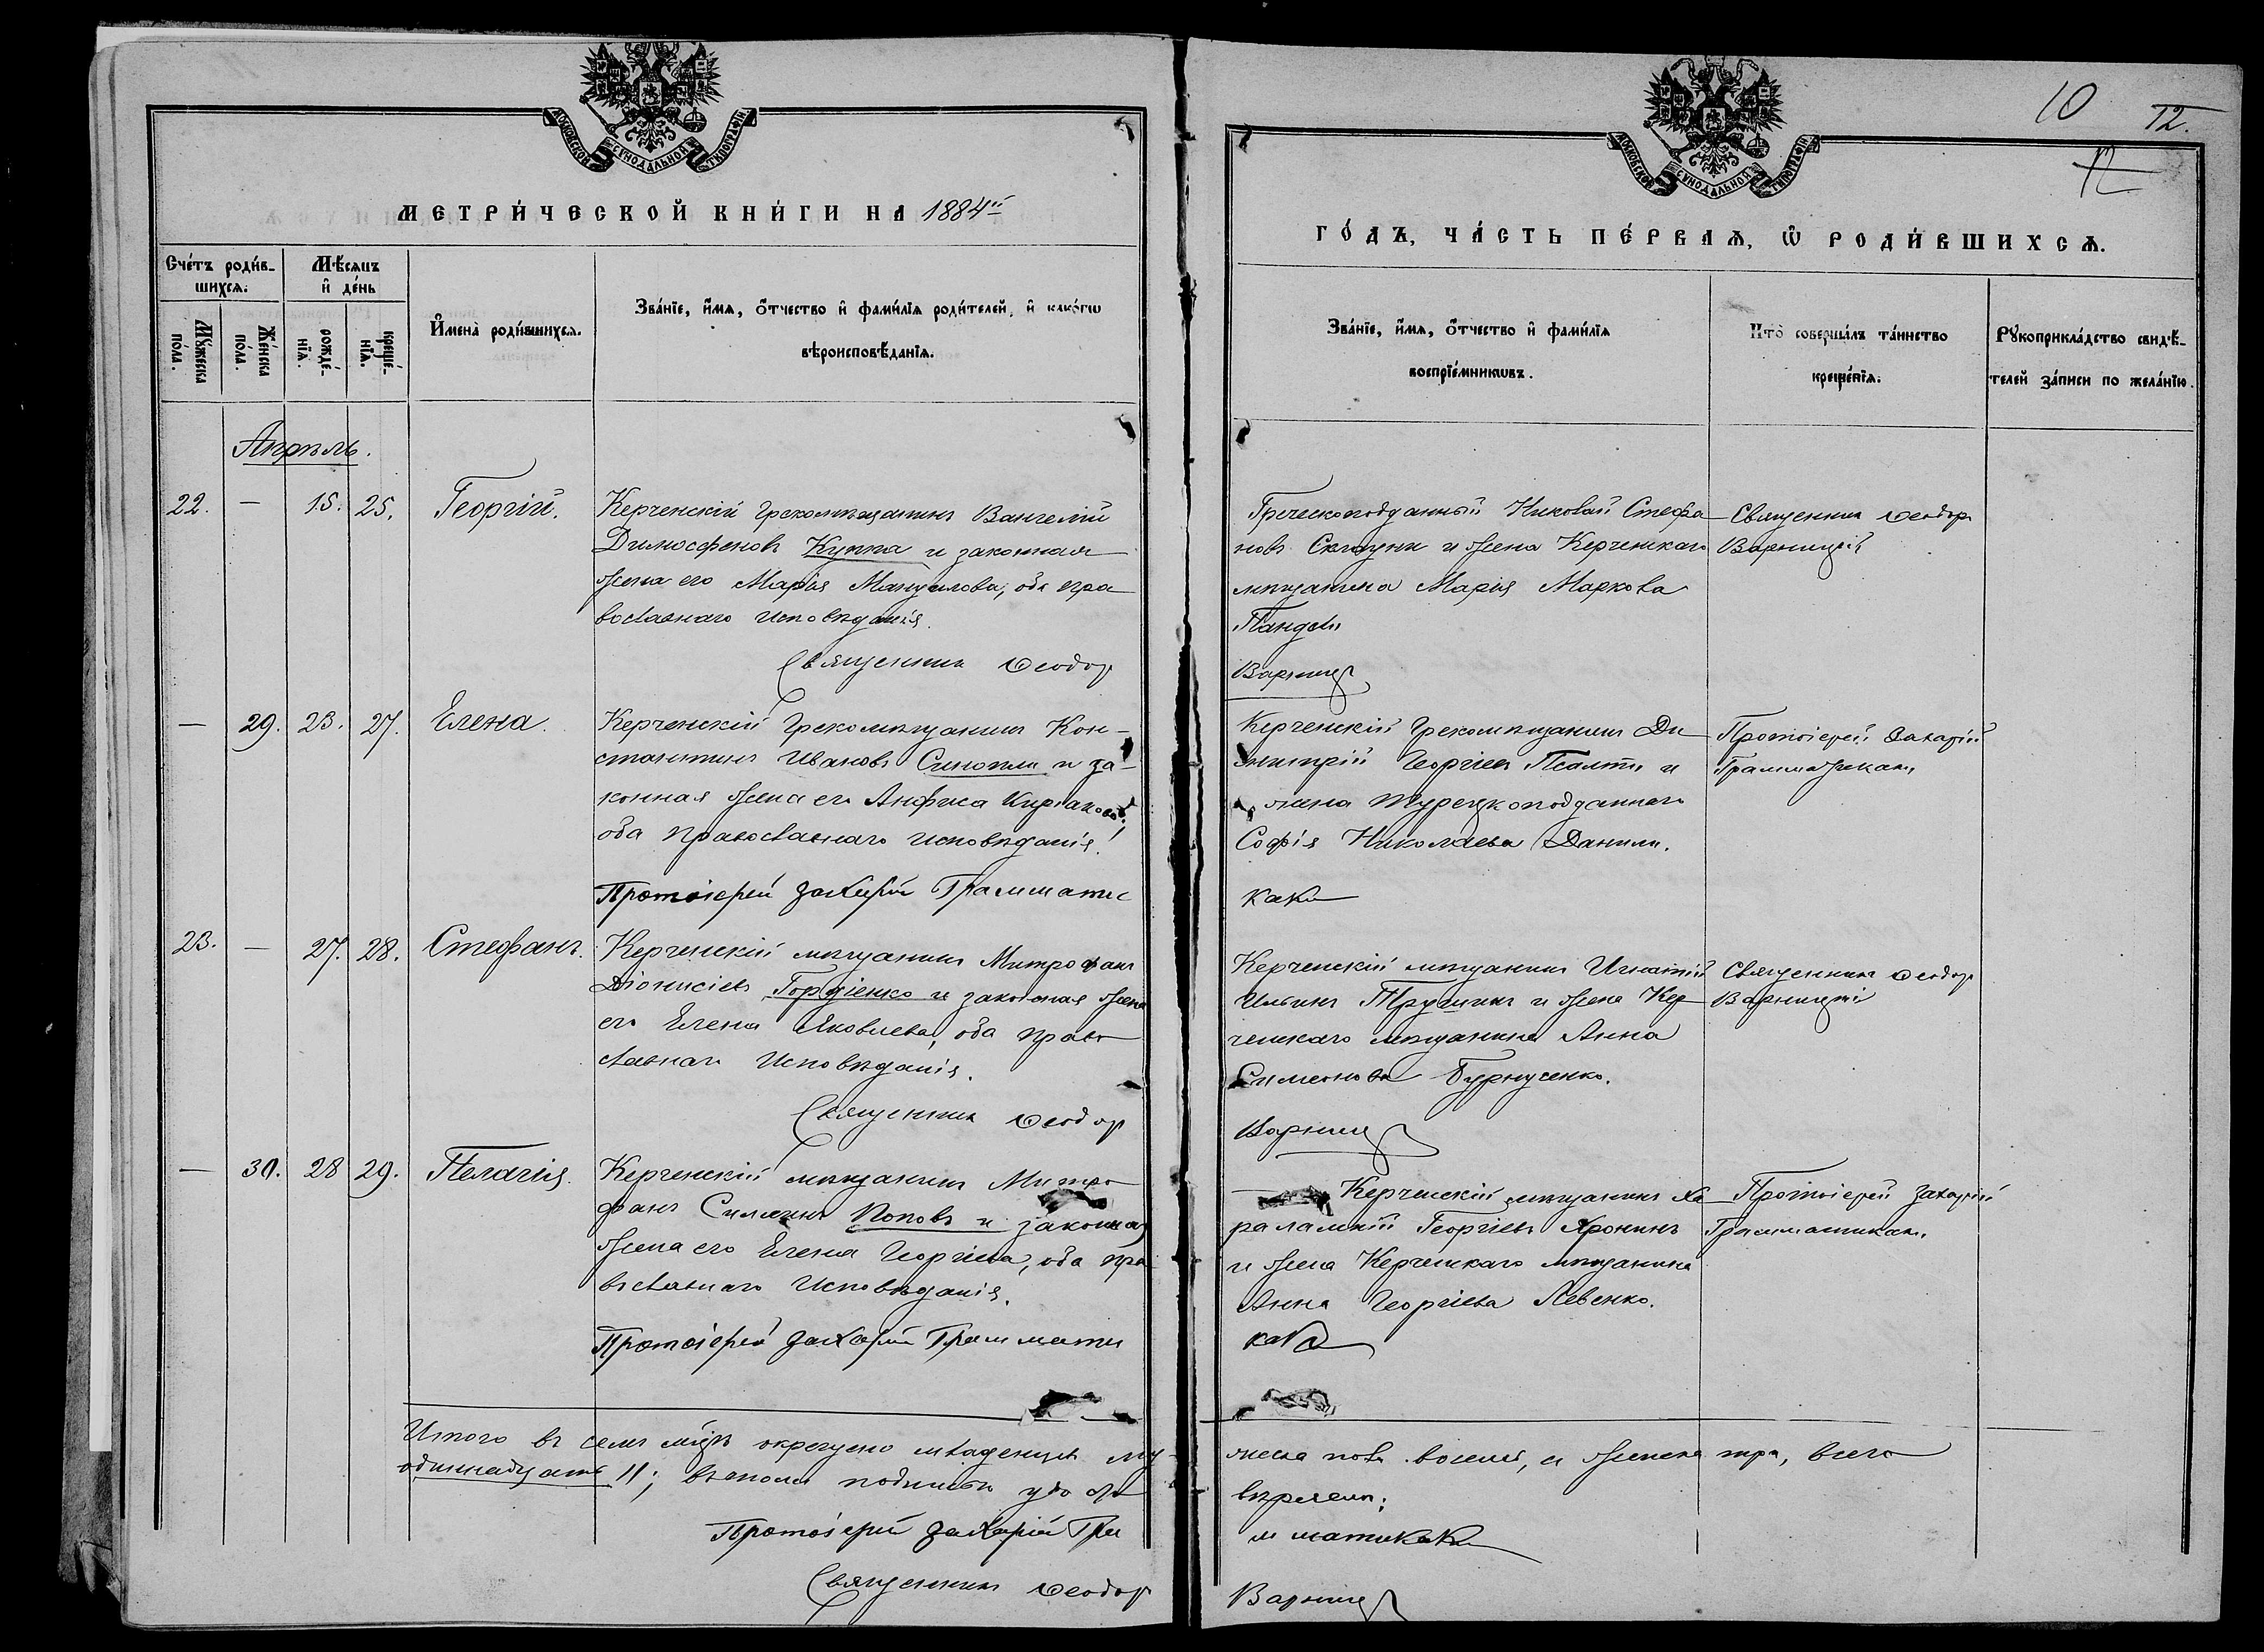 МОСКОВСКОЙ СѴНОДАЛЬНОЙ ТИПОГРАФІИ
МЕТРИ́ЧЕСКОЙ КНИ́ГИ НА 1884й
Сче́тъ роди́в-
шихсѧ.
Мѣ́сѧцъ
и҆ де́нь
Мꙋ́жеска
по́ла.
Же́нска
по́ла.
рожде́-
нїѧ.
креще́-
нїѧ.
И҆мена̀ роди́вшихсѧ.
Зва́нїе, и҆́мѧ, ѻ҆́тчество и҆ фами́лїѧ роди́телей, и҆ како́гѡ
вѣроисповѣ́данїѧ.
Апрѣль.
22. — 15. 25. Георгій.
Керченскій грекомѣщанинъ Вангелій
Димосфеновъ Куппа и законная
жена его Марія Мануилова, оба пра
вославнаго исповѣданія.
Священникъ Ѳеодор
— 29. 23. 27. Елена.
Керченскій грекомѣщанинъ Кон-
стантинъ Ивановъ Синопли и за-
конная жена его Анфиса Киріакова;
оба православнаго исповѣданія.
Протоіерей Захарій Граммати
23. — 27. 28. Стефанъ.
Керченскій мѣщанинъ Митрофанъ
Діонисіевъ Гордіенко и законная жена
его Елена Яковлева, оба право
славнаго исповѣданія.
Священникъ Ѳеодор
— 30. 28 29. Пелагія.
Керченскій мѣщанинъ Митро
фанъ Симеинъ Поповъ и законная
жена его Елена Георгіева, оба пра
вославнаго исповѣданія.
Протоіерей Захарій Граммати
Итого въ семъ м҃цѣ окрещено младенцевъ му-
одиннадцать 11; въ томъ подписью удо сто
Протоіерей Захарій Гра
Священникъ Ѳеодор
10 12.
12
МОСКОВСКОЙ СѴНОДАЛЬНОЙ ТИПОГРАФІИ
ГО́ДЪ, ЧА́СТЬ ПЕ́РВАѦ, Ѡ҆ РОДИ́ВШИХСѦ.
Зва́нїе, и҆́мѧ, ѻ҆́тчество и҆ фами́лїѧ
воспрїе́мникѡвъ.
Кто̀ соверши́лъ та́инство
креще́нїѧ.
Рꙋкоприкла́дство свидѣ́-
телей за́писи по жела́нїю.
Греческоподданный Николай Стефа
новъ и жена Керченскаго
мѣщанина Марія Маркова
Варниц
Священникъ Ѳеодоръ
Варницкій
Керченскій грекомѣщанинъ Ди
митрій Георгіевъ Псалти и
жена турецкоподданнаго
Софія Николаева Данили.
кака
Протоіерей Захарій
Грамматикаки
Керченскій мѣщанинъ Игнатій
Ильинъ Трушинъ и жена Кер
ченскаго мѣщанина Анна
Симеонова Бурнусенко.
Варниц
Священникъ Ѳеодоръ
Варницкій
Керченскій мѣщанинъ Ха
ралампій Георгіевъ Хронинъ
и жена Керченскаго мѣщанина
Анна Георгіева Левенко.
кака
Протоіерей Захарій
Грамматикаки
жеска пола восемь, а женска три, всего
вѣряемъ;
мматикака
Варниц